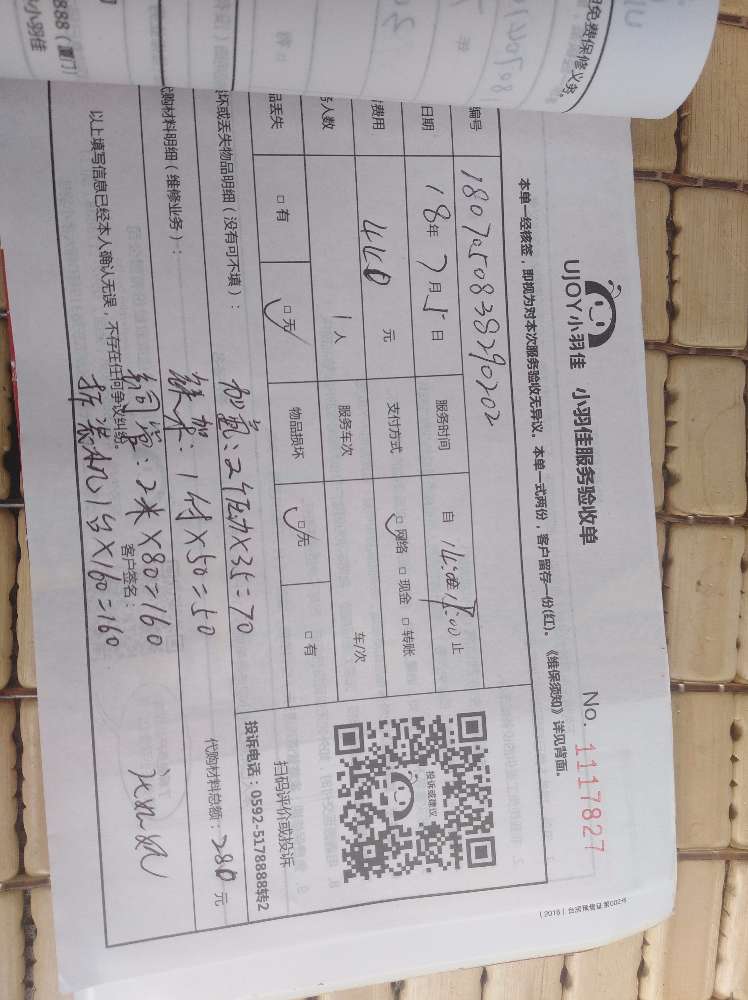 UJOY小羽佳 小羽佳服务验收单
No. 1117827
本单一经核签，即视为对本次服务验收无异议。本单一式两份，客户留存一份(红)。《维保须知》详见背面。
编号 1807050838290202
日期 18年7月5日 服务时间 自 止
费用 440 元 支付方式 □网络 □现金 □转账
人数 1人 服务车次 车/次
品丢失 □有 □无 物品损坏 □无 □有
投诉或建议
扫码评价或投诉
投诉电话：0592-5178888转2
坏或丢失物品明细（没有可不填）：
加氟：2个压力×35=70
购材料明细（维修业务）：
支架：1付×50=50
代购材料总额：280元
铜管：2米×80=160
以上填写信息已经本人确认无误，不存在任何争议纠纷。
客户签名：
拆装机1台×160=160
(2018)
免费保修义务。
888（厦门
小羽佳